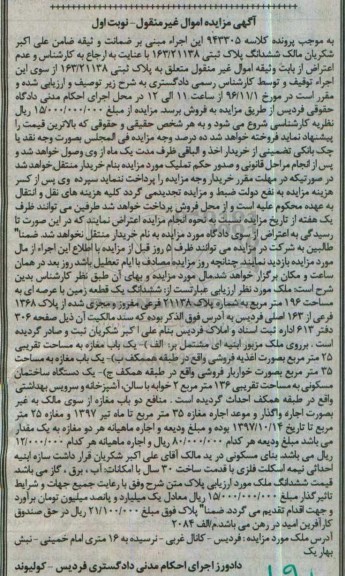 آگهی مزایده اموال غیرمنقول- نوبت اول
به موجب پرونده کلاسه ۹۴۳۳۰۵ این اجراء مبنی بر ضمانت و ثیقه ضامن علی اکبر
شکریان مالک ششدانگ پلاک ثبتی ۱۶۳/۲۱۱۳۸ با عنایت به ارجاع به کارشناس و عدم
اعتراض از بابت وثیقه اموال غیر منقول متعلق به پلاک ثبتی ۱۶۳/۲۱۱۳۸ از سوی این
اجراء توقیف و توسط کارشناس رسمی دادگستری به شرح زیر توصیف و ارزیابی شده و
مقرر است در مورخ ۹۶/۱۱/۱ از ساعت ۱۱ الی ۱۲ در محل اجرای احکام مدنی دادگاه
حقوقی فردیس از طریق مزایده به فروش برسد. مزایده از مبلغ ۱۵/۰۰۰/۰۰۰/۰۰۰ ریال
نظریه کارشناسی شروع می شود و به هر شخص حقیقی و حقوقی که بالاترین قیمت را
پیشنهاد نماید فروخته خواهد شد ده درصد وجه مزایده فی المجلس بصورت وجه نقد یا
چک بانکی تضمینی از خریدار اخذ و الباقی ظرف مدت یک ماه از وی وصول خواهد شد و
پس از انجام مراحل قانونی و صدور حکم تملیک مورد مزایده بنام خریدار منتقل خواهد شد
در صورتیکه در مهلت مقرر خریدار وجه مزایده را پرداخت ننماید سپرده وی پس از کسر
هزینه مزایده به نفع دولت ضبط و مزایده تجدید می گردد کلیه هزینه های نقل و انتقال
به عهده محکوم علیه است و از محل فروش پرداخت خواهد شد طرفین می توانند ظرف
یک هفته از تاریخ مزایده نسبت به نحوه انجام مزایده اعتراض نمایند که در این صورت تا
رسیدگی به اعتراض از سوی دادگاه مورد مزایده به نام خریدار منتقل نخواهد شد. ضمنا"
طالبین به شرکت در مزایده می توانند ظرف ۵ روز قبل از مزایده با اطلاع این اجراء از مال
مورد مزایده بازدید نمایند. چنانچه روز مزایده مصادف با ایام تعطیل باشد روز بعد در همان
ساعت و مکان برگزار خواهد شد. مال مورد مزایده و بهای آن طبق نظر کارشناس بدین
شرح است: ملک مورد نظر ارزیابی عبارتست از: ششدانگ یک قطعه زمین با عرصه ای به
مساحت ۱۹۶ متر مربع به شماره پلاک ۲۱۱۳۸ فرعی مفروز و مجزی شده از پلاک ۱۳۶۸
فرعی از ۱۶۳ اصلی فردیس به آدرس فوق الذکر بوده که سند مالکیت آن ذیل صفحه ۳۰۶
دفتر ۶۱۳ اداره ثبت اسناد و املاک فردیس بنام علی اکبر شکریان ثبت و صادر گردیده
است. برروی ملک مزبور ابنیه ای مشتمل بر: الف)- یک باب مغازه به مساحت تقریبی
۲۵ متر مربع بصورت اغذیه فروشی واقع در طبقه همکف ب)- یک باب مغازه به مساحت
۳۵ متر مربع بصورت خواربار فروشی واقع در طبقه همکف ج)- یک دستگاه ساختمان
مسکونی به مساحت تقریبی ۱۳۶ متر مربع ۲ خوابه با سالن، آشپزخانه و سرویس بهداشتی
واقع در طبقه همکف احداث گردیده است. منافع دو باب مغازه از سوی مالک به غیر
بصورت اجاره واگذار و موعد اجاره مغازه ۳۵ متر مربع تا ماه تیر ۱۳۹۷ و مغازه ۲۵ متر
مربع تا تاریخ ۱۳۹۷/۱۰/۱۴ بوده و مبلغ ودیعه و اجاره ماهیانه هر دو مغازه به یک مقدار
می باشد مبلغ ودیعه هر کدام ۸۰/۰۰۰/۰۰۰ ریال و اجاره ماهیانه هر کدام ۱۲/۰۰۰/۰۰۰
ریال می باشد. بنای مسکونی در ید مالک آقای علی اکبر شکریان قرار داشت سازه ابنیه
احداثی نیمه اسکلت فلزی با قدمت ساخت ۳۰ سال با امکانات: آب، برق، گاز می باشد
قیمت ششدانگ ملک مورد ارزیابی پلاک متن شرح وفق با رعایت جمیع جهات و شرایط
تاثیرگذار مبلغ ۱۵/۰۰۰/۰۰۰/۰۰۰ ریال معادل یک میلیارد و پانصد میلیون تومان برآورد
و جهت اقدام تقدیم می گردد. ضمنا" پلاک فوق مبلغ ۲۱/۱۰۰/۰۰۰ ریال در حق صندوق
کارآفرین امید در رهن می باشد. م الف ۲۰۸۴
آدرس ملک مورد مزایده: فردیس- کانال غربی- نرسیده به ۱۶ متری امام خمینی- نبش
بهار یک
دادورز اجرای احکام مدنی دادگستری فردیس- کولیوند